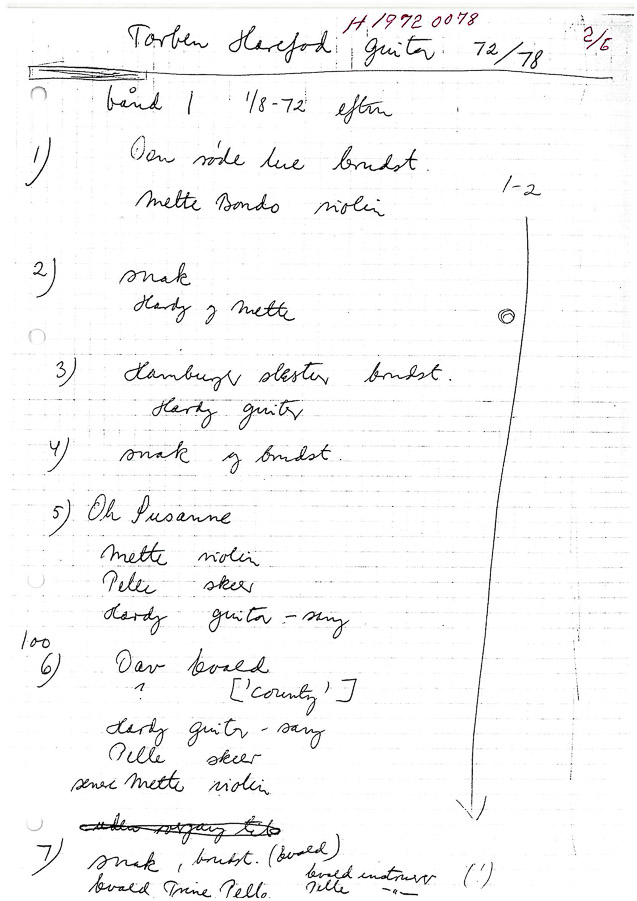 H 1972 0078
2/6
Torben Harefod guitar 72/78
bånd 1 1/8-72 eftm
1) Den røde lue brudst.
Mette Bondo violin
1-2
2) snak
Hardy og Mette
3) Hamburger slæster brudst.
Hardy guitar
4) snak og brudst.
5) Oh Susanne
Mette violin
Pelle skeer
Hardy guitar - sang
100
6) Dav Evald
? ['county']
Hardy guitar - sang
Pelle skeer
senere Mette violin
7) snak, brudst. (Evald)
Evald instruerer (!)
Evald, Trine, Pelle Pelle -"-